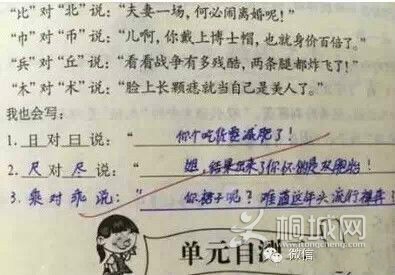 "比"对"北"说:"夫妻一场,何必闹离婚呢!"
"巾"对"币"说:"儿啊,你戴上博士帽,也就身价百倍了。"
"兵"对"丘"说:"看看战争有多残酷,两条腿都炸飞了!"
"木"对"术"说:"脸上长颗痣就当自己是美人了。"
我也会写:
1. 日对曰说:"你个吃货要减肥了!
2. 尺对尽说:"姐,结果出来了你怀的是双胞胎!
3. 乘对乖说:"你裤子呢?难道这年头流行裸奔!
桐城网
单元自测
微信